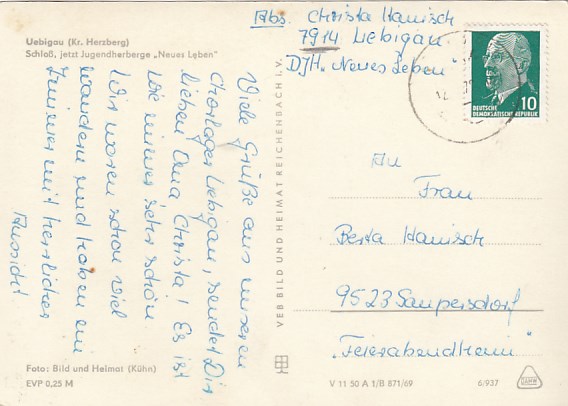 Uebigau (Kr. Herzberg)
Schloß, jetzt Jugendherberge „Neues Leben"
Abs. Christa Hanisch
7914 Uebigau
DJH „Neues Leben"
DEUTSCHE
DEMOKRATISCHE REPUBLIK
10
Viele Grüße aus unserem
Chorlager Uebigau, sendet Dir
lieben Oma Christa! Es ist
wie immer sehr schön
Wir waren schon viel
wandern und haben ein
Zimmer mit herrlicher
Aussicht
VEB BILD UND HEIMAT REICHENBACH i. V.
An
Frau
Berta Hanisch
9523 Saupersdorf
„Feierabendheim"
Foto: Bild und Heimat (Kühn)
EVP 0,25 M
V 11 50 A 1/B 871/69
6/937